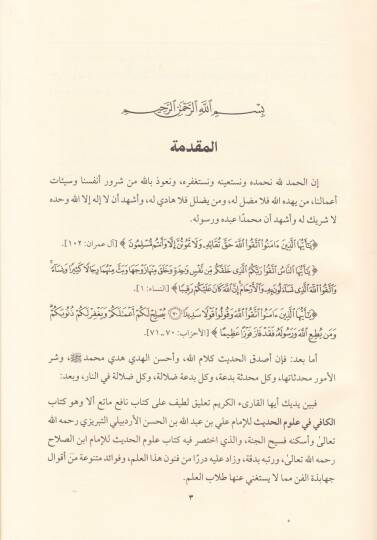 بِسْمِ اللَّهِ الرَّحْمَنِ الرَّحِيمِ
المقدمة
إن الحمد لله نحمده ونستعينه ونستغفره، ونعوذ بالله من شرور أنفسنا وسيئات
أعمالنا، من يهده الله فلا مضل له، ومن يضلل فلا هادي له، وأشهد أن لا إله إلا الله وحده
لا شريك له وأشهد أن محمدًا عبده ورسوله.
﴿يَٰٓأَيُّهَا ٱلَّذِينَ ءَامَنُوا۟ ٱتَّقُوا۟ ٱللَّهَ حَقَّ تُقَاتِهِۦ وَلَا تَمُوتُنَّ إِلَّا وَأَنتُم مُّسْلِمُونَ﴾ [آل عمران: ١٠٢].
﴿يَٰٓأَيُّهَا ٱلنَّاسُ ٱتَّقُوا۟ رَبَّكُمُ ٱلَّذِى خَلَقَكُم مِّن نَّفْسٍ وَٰحِدَةٍ وَخَلَقَ مِنْهَا زَوْجَهَا وَبَثَّ مِنْهُمَا رِجَالًا كَثِيرًا وَنِسَآءً ۚ
وَٱتَّقُوا۟ ٱللَّهَ ٱلَّذِى تَسَآءَلُونَ بِهِۦ وَٱلْأَرْحَامَ ۚ إِنَّ ٱللَّهَ كَانَ عَلَيْكُمْ رَقِيبًا﴾ [النساء: ١].
﴿يَٰٓأَيُّهَا ٱلَّذِينَ ءَامَنُوا۟ ٱتَّقُوا۟ ٱللَّهَ وَقُولُوا۟ قَوْلًا سَدِيدًا ﴿٧٠﴾ يُصْلِحْ لَكُمْ أَعْمَٰلَكُمْ وَيَغْفِرْ لَكُمْ ذُنُوبَكُمْ ۗ
وَمَن يُطِعِ ٱللَّهَ وَرَسُولَهُۥ فَقَدْ فَازَ فَوْزًا عَظِيمًا﴾ [الأحزاب: ٧٠-٧١].
أما بعد: فإن أصدق الحديث كلام الله، وأحسن الهدي هدي محمد ﷺ، وشر
الأمور محدثاتها، وكل محدثة بدعة، وكل بدعة ضلالة، وكل ضلالة في النار، وبعد:
فبين يديك أيها القارىء الكريم تعليق لطيف على كتاب نافع ماتع ألا وهو كتاب
الكافي في علوم الحديث للإمام علي بن عبد الله بن الحسن الأردبيلي التبريزي رحمه الله
تعالى وأسكنه فسيح الجنة، والذي اختصر فيه كتاب علوم الحديث للإمام ابن الصلاح
رحمه الله تعالى، ورتبه بدقة، وزاد عليه دررًا من فنون هذا العلم، وفوائد متنوعة من أقوال
جهابذة الفن مما لا يستغني عنها طلاب العلم.
٣